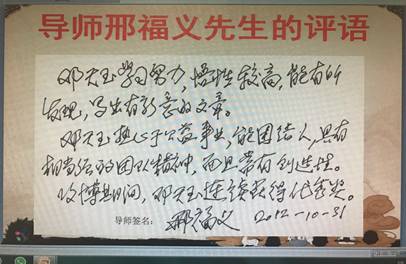 导师邢福义先生的评语
邓天玉学习努力,悟性较高,能有所
发现,写出有新意的文章。
邓天玉热心于公益事业,能团结人,具有
相当强的团队精神,而且带有创造性。
攻博期间,邓天玉连续获得优秀奖。
导师签名: 邢福义 2012-10-31